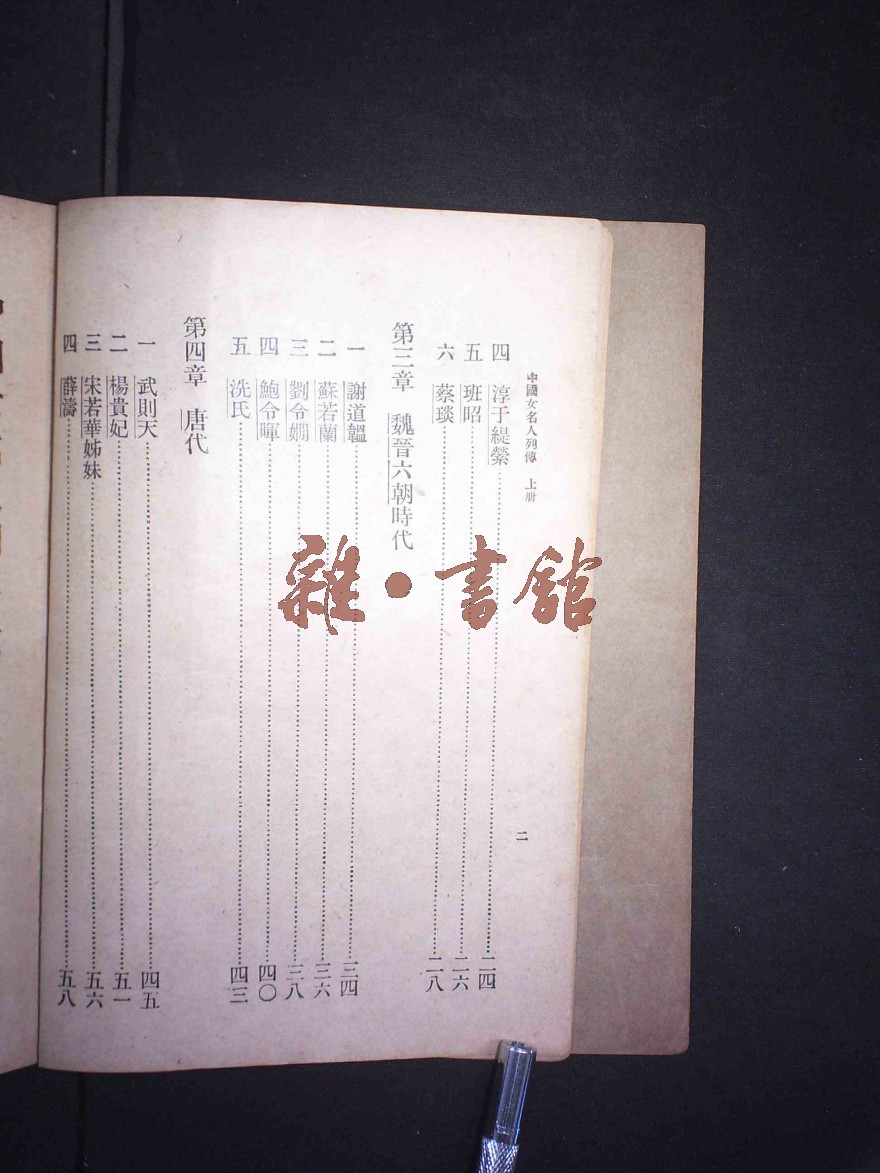 中國女名人列傳 上册
二
四 淳于緹縈 二四
五 班昭 二六
六 蔡琰 二八
第三章 魏晉六朝時代
一 謝道韞 三四
二 蘇若蘭 三六
三 劉令嫺 三八
四 鮑令暉 四〇
五 洗氏 四三
第四章 唐代
一 武則天 四五
二 楊貴妃 五一
三 宋若華姊妹 五六
四 薛濤 五八
雜・書館